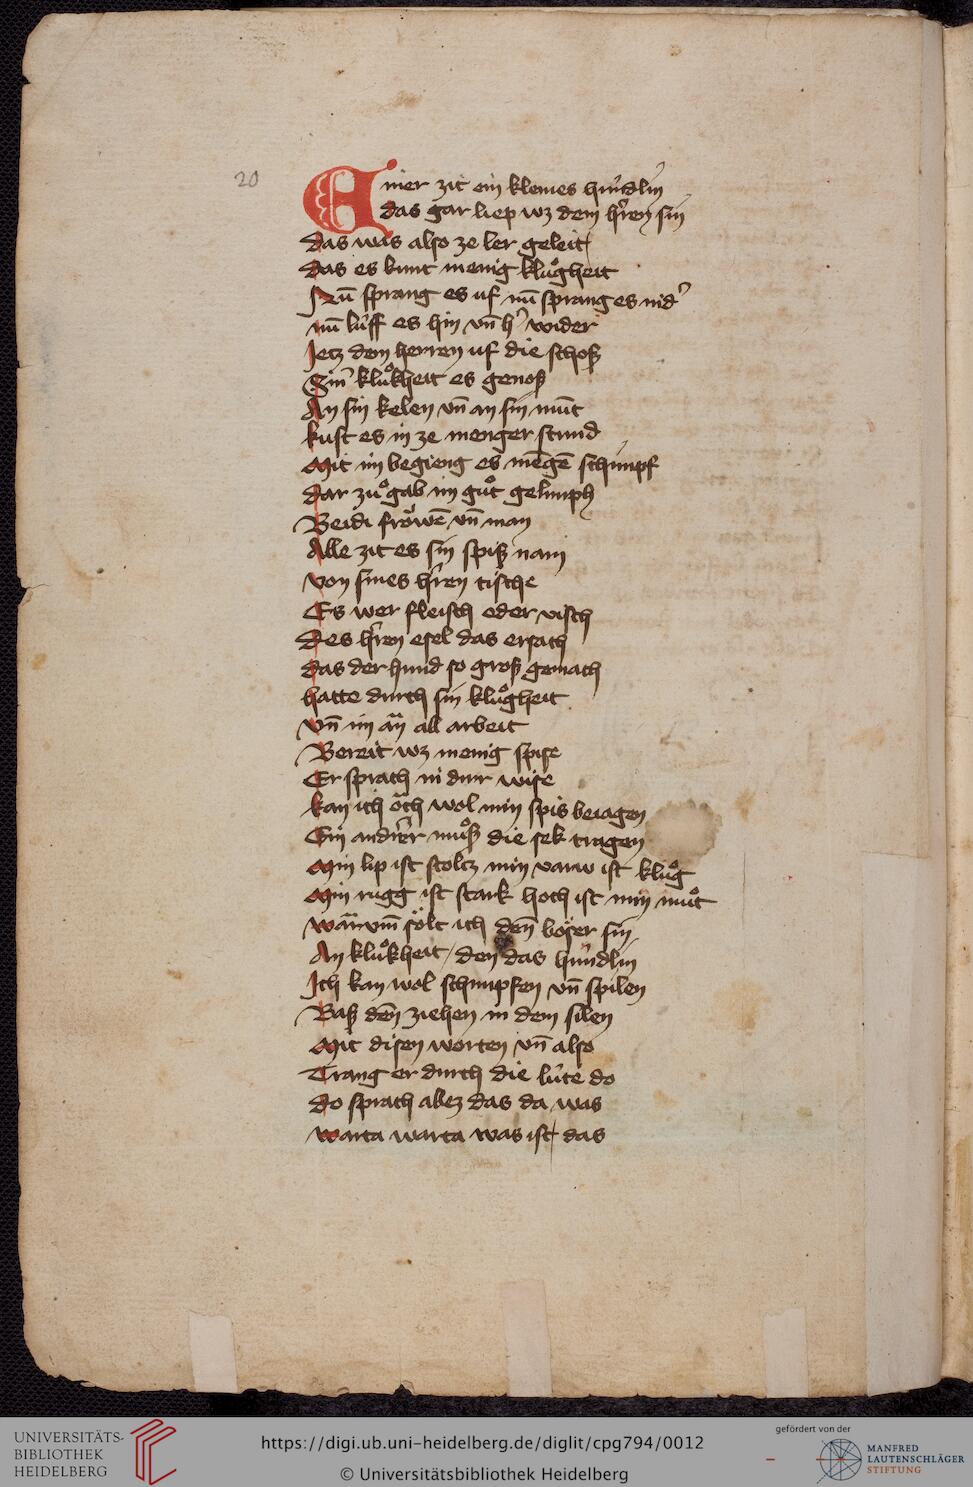 20
Einer zit ein kleines húndlin
das gar liep wz dem hr̄en sin
das was also ze ler geleit
das es kunt menig klůgheit
Nū sprang es uf nū sprang es nid'
nū lúff es hin vn̄ h' wider
Jetz dem herren uf die schoß
Sin' klůkheit es genoß
An sin kelen vn̄ an sin mūt
kust es in ze menger stund
Mit im begieng es mēgē schimpf
dar zů gab im gůt gelimph
Beidi frowē vn̄ man
Alle zit es sin spiß nam
von sines hr̄en tische
Es wer fleisch oder visch
des hr̄en esel das ersach
das der hund so groß gemach
hatte durch sin klůgheit
vn̄ im an all arbeit
Bereit wz menig spise
Er sprach in diner wise
kan ich och wol min spis beiagen
Ein andrer můß die sek tragen
Min lip ist stoltz min varw ist klůg
Min rugg ist stark hoch ist min můt
warvm sölt ich den̄ böser sin
An klůkheit / den das húndlin
Ich kan wol schimpfen vn̄ spilen
Baß den̄ ziehen in dem silen
Mit disen worten vn̄ also
Trang er durch die lúte do
do sprach alez das da was
warta warta was ist das
UNIVERSITÄTS-
BIBLIOTHEK
HEIDELBERG
https://digi.ub.uni-heidelberg.de/diglit/cpg794/0012
© Universitätsbibliothek Heidelberg
gefördert von der
MANFRED
LAUTENSCHLÄGER
STIFTUNG